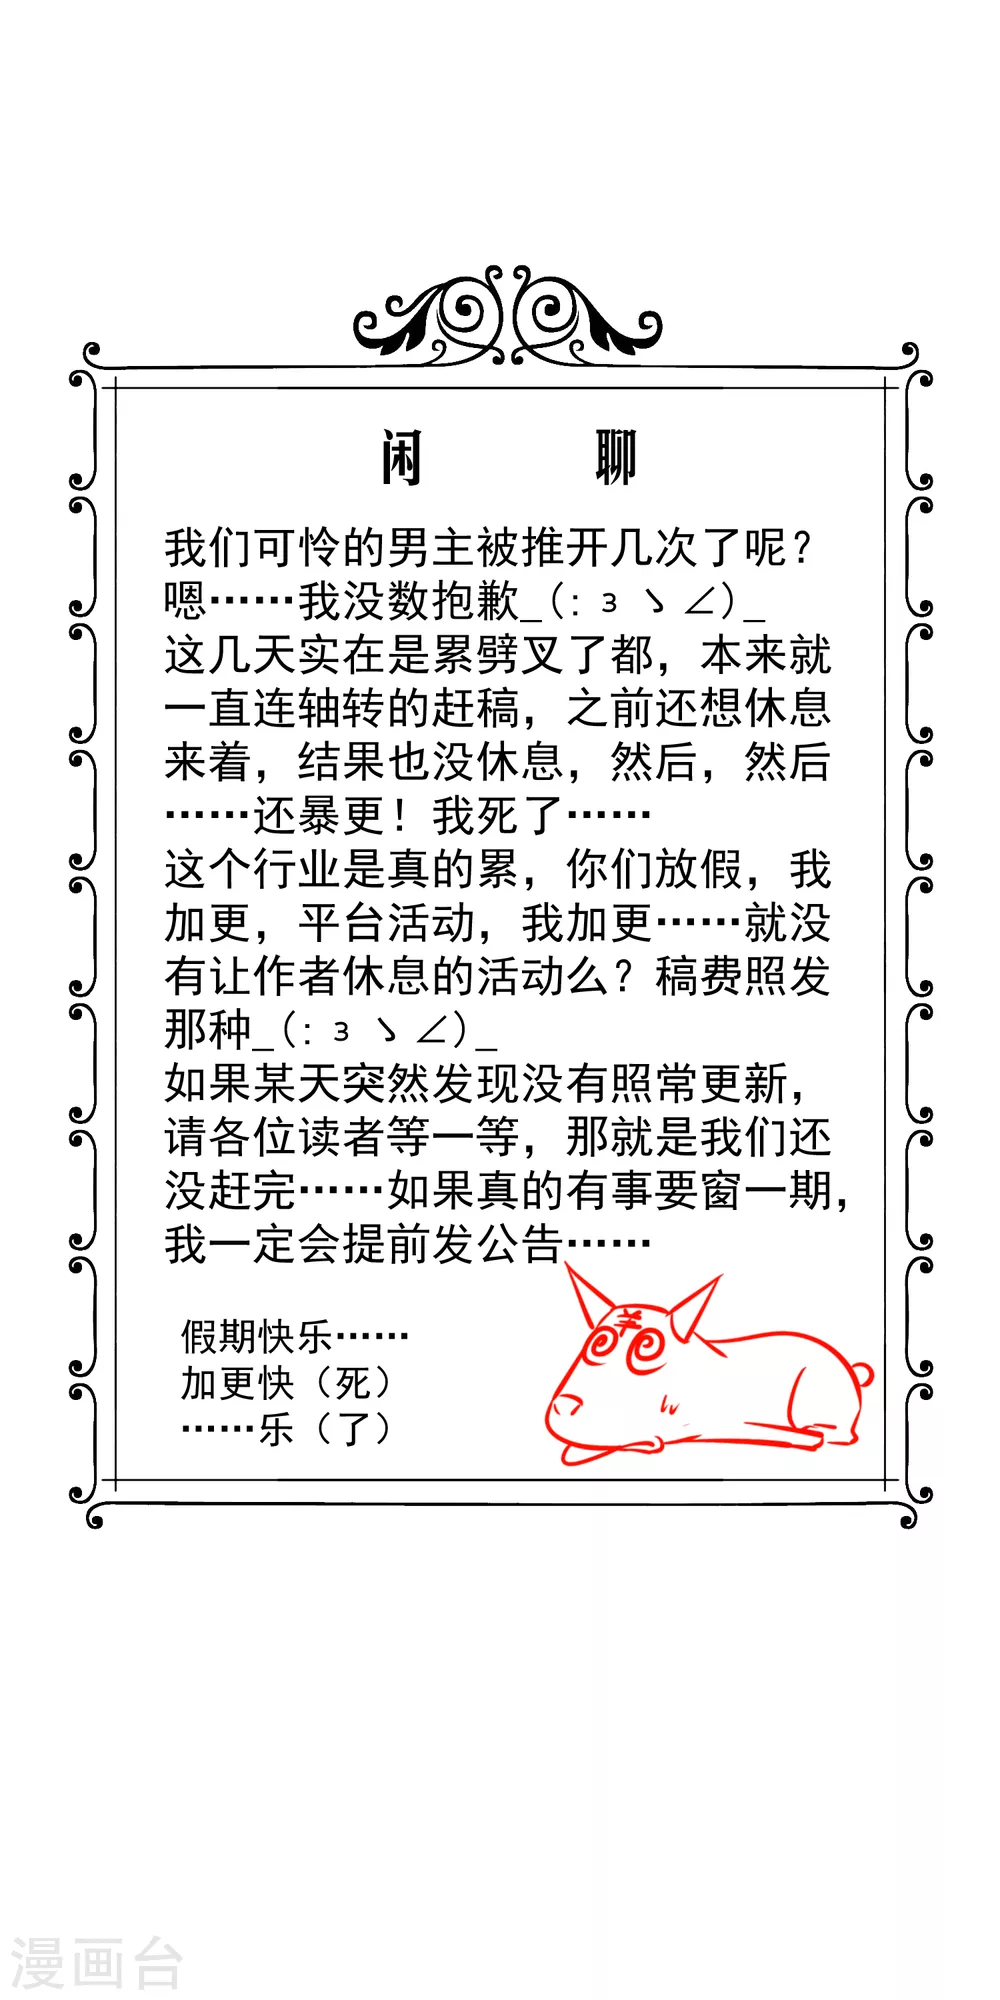 闲 聊
我们可怜的男主被推开几次了呢？
嗯……我没数抱歉_(:зゝ∠)_
这几天实在是累劈叉了都，本来就
一直连轴转的赶稿，之前还想休息
来着，结果也没休息，然后，然后
……还暴更！我死了……
这个行业是真的累，你们放假，我
加更，平台活动，我加更……就没
有让作者休息的活动么？稿费照发
那种_(:зゝ∠)_
如果某天突然发现没有照常更新，
请各位读者等一等，那就是我们还
没赶完……如果真的有事要窗一期，
我一定会提前发公告……
假期快乐……
加更快（死）
……乐（了）
漫画台